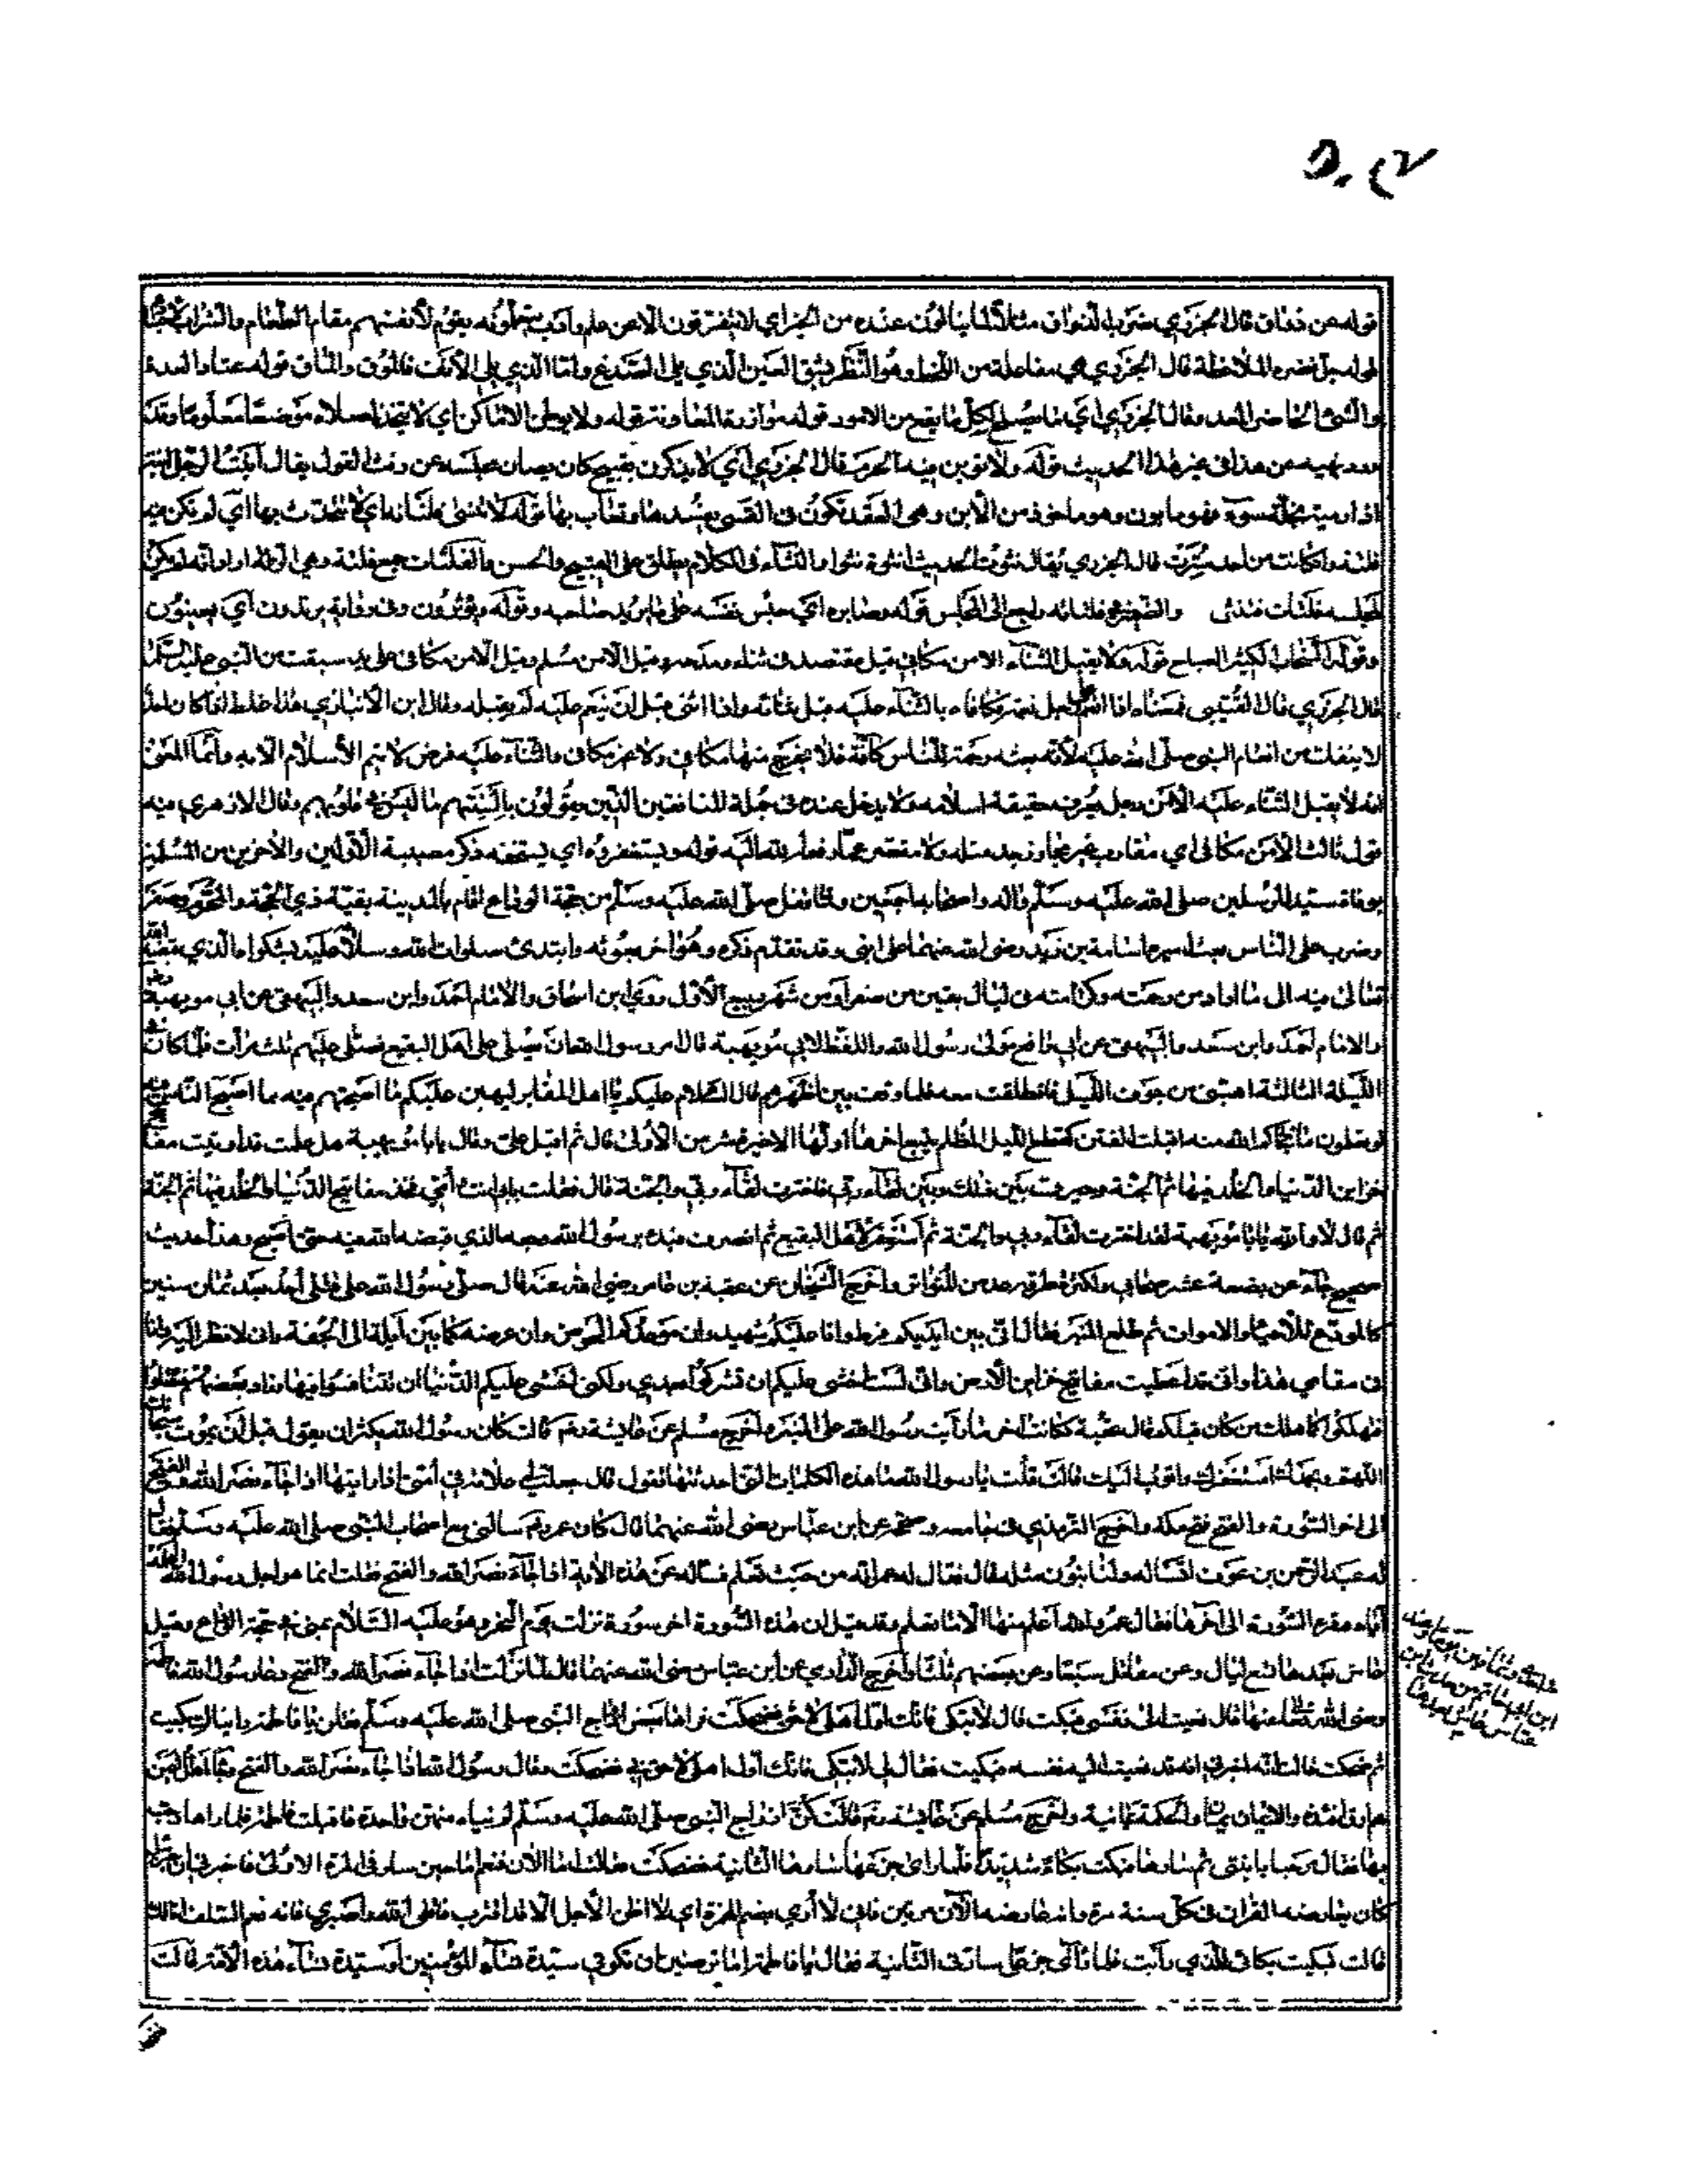 قوله عن ذواق قال الجزري ضرب الذواق مثالا لما ينالون عنده من الخير اي لا يتفرقون الا عن علم وادب يتعلمونه يقوم لأنفسهم مقام الطعام والشراب
قوله جل نظره الملاحظة قال الجزري هي مفاعلة من اللحظ وهو النظر بشق العين الذي يلي الصدغ واما الذي يلي الأنف فالموق والماق قوله عتاد العدة
والشئ الحاضر المعد وقال الجزري اي ما يصلح لكل ما يقع من الامور قوله موازرة المعاونة قوله ولا يوطن الاماكن اي لا يتخذ لصلاه موضعا معلوما وقد
ورد نهيه عن هذا في غير هذا الحديث قوله ولا تؤبن فيه الحرم قال الجزري اي لا يذكرن بقبيح كان يصان مجلسه عن رفث القول يقال أبنت الرجل
اذا رميته بخلة سوء فهو مابون وهو ماخوذ من الأبن وهي العقد تكون في القسي تفسدها وتعاب بها قوله لا تنثى فلتاته اي لا يتحدث بها اي لم تكن فيه
فلتة وان كانت من احد سترت قال الجزري يقال نثوت الحديث انثوه نثوا والنثاء في الكلام يطلق على القبيح والحسن والفلتات جمع فلتة وهي الزلة اراد انه لم يكن
لمجلسه فلتات فتنثى والضمير في فلتاته راجع الى المجلس قوله وصابره اي حبس نفسه على ما يريد صاحبه وقوله ويؤثرون وفي رواية يرفدون اي يعينون
وقوله السخاب الكثير الصياح قوله ولا يقبل الثناء الا من مكافي قيل مقتصد في ثناءه ومدحه وقيل الا من مسلم وقيل الا من مكافي على يد سبقت من النبي عليه السلام
قال الجزري قال القتيبي معناه اذا انعم على رجل نعمة فكافاه بالثناء عليه قبل ثنائه واذا اثنى قبل ان ينعم عليه لم يقبله وقال ابن الانباري هذا غلط اذ كان احد
لا ينفك من انعام النبي صلى الله عليه لأنه بعثه رحمة للناس كافة فلا يخرج منها مكافي ولا غير مكافي والثناء عليه فرض لا يتم الأسلام الا به وانما المعنى
انه لا يقبل الثناء عليه الا من رجل يعرف حقيقة اسلامه ولا يدخل عنده في جملة المنافقين الذين يقولون بالسنتهم ما ليس في قلوبهم وقال الازهري فيه
قول ثالث الا من مكافي اي مقارب غير مجاوز حد مثله ولا مقصر عما رفعه الله اليه قوله ويستفزه اي يستخفه ذكر مصيبة الأولين والأخرين من المسلمين
بوفاة سيد المرسلين صلى الله عليه وسلم واله واصحابه اجمعين ولما قفل صلى الله عليه وسلم من حجة الوداع اقام بالمدينة بقية ذي الحجة والمحرم وصفر
وضرب على الناس بعثا اميرها اسامة بن زيد رضي الله عنهما على ابنى وقد تقدم ذكره وهو اخر بعوثه وابتدئ صلوات الله وسلامه عليه بشكواه الذي قبضه الله
تعالى فيه الى ما اراد من رحمته وكرامته في ليال بقين من صفر او من شهر ربيع الأول روى ابن اسحاق والامام احمد وابن سعد والبيهقي عن ابي مويهبة
والامام احمد وابن سعد والبيهقي عن ابي رافع مولى رسول الله واللفظ لابي مويهبة قال امر رسول الله ان يصلي على اهل البقيع فصلى عليهم ثلث مرات فلما كان
الليلة الثالثة اهبني من جوف الليل فانطلقت معه فلما وقف بين اظهرهم قال السلام عليكم يا اهل المقابر ليهن عليكم ما اصبحتم فيه مما اصبح الناس
لو تعلمون ما نجاكم الله منه اقبلت الفتن كقطع الليل المظلم يتبع اخرها اولها الاخرة شر من الأولى قال ثم اقبل علي وقال يا ابا مويهبة هل علمت قد اوتيت مفاتيح
خزاين الدنيا والخلد فيها ثم الجنة وخيرت بين ذلك وبين لقاء ربي والجنة فاخترت لقاء ربي والجنة قال فقلت بابي انت وامي فخذ مفاتيح الدنيا والخلد فيها ثم الجنة
ثم قال لا والله يا ابا مويهبة لقد اخترت لقاء ربي والجنة ثم استغفر لأهل البقيع ثم انصرف فبدء برسول الله وجعه الذي قبضه الله فيه حتى اصبح وهذا حديث
صحيح جاء عن بضعة عشر صحابي واخرج الشيخان عن عقبة بن عامر رضي الله عنه قال صلى رسول الله على قتلى احد بعد ثمان سنين
كالمودع للأحياء والاموات ثم طلع المنبر فقال اني بين ايديكم فرط وانا عليكم شهيد وان موعدكم الحوض وان عرضه كما بين ايلة الى الجحفة واني لانظر اليه وانا
في مقامي هذا واني قد اعطيت مفاتيح خزاين الأرض واني لست اخشى عليكم ان تشركوا بعدي ولكن اخشى عليكم الدنيا ان تتنافسوا فيها
فتهلكوا كما هلك من كان قبلكم قال عقبة فكانت اخر ما رأيت رسول الله على المنبر واخرج مسلم عن عائشة رضم قالت كان رسول الله يكثر ان يقول قبل ان يموت سبحانك
اللهم وبحمدك استغفرك واتوب اليك قالت قلت يا رسول الله ما هذه الكلمات التي احدثتها تقول قال جعلت لي علامة في امتي اذا رايتها اذا جاء نصر الله والفتح
الى اخر السورة والفتح فتح مكة واخرج الترمذي في جامعه وصححه عن ابن عباس رضي الله عنهما قال كان عمر رضم سالني مع اصحاب النبي صلى الله عليه وسلم فقال
له عبد الرحمن بن عوف اتساله ولنا بنون مثله قال فقال له عمر انه من حيث تعلم فساله عن هذه الأية اذا جاء نصر الله والفتح فقلت انما هو اجل رسول الله اعلمه
اياه وقرء السورة الى اخرها فقال عمر والله ما اعلم منها الا ما تعلم وقد قيل ان هذه السورة اخر سورة نزلت يوم النحر وهو عليه السلام بمنى في حجة الوداع وقيل
عاش بعدها تسع ليال وعن مقاتل سبعا وعن بعضهم ثلثا واخرج الدارمي عن ابن عباس رضي الله عنهما قال لما نزلت اذا جاء نصر الله والفتح دعا رسول الله فاطمة
رضي الله تعالى عنها قال نعيت الي نفسي فبكت قال لا تبكي فانك اول اهلي لاحق بي فضحكت فراها بعض ازواج النبي صلى الله عليه وسلم فقلن يا فاطمة رايناك بكيت
ثم ضحكت قالت انه اخبرني انه قد نعيت اليه نفسه فبكيت فقال لي لا تبكي فانك اول اهلي لاحق بي فضحكت وقال رسول الله اذا جاء نصر الله والفتح وجاء اهل اليمن
هم ارق افئدة والايمان يمان والحكمة يمانية واخرج مسلم عن عائشة رضم قالت كن ازواج النبي صلى الله عليه وسلم لم يغادر منهن واحدة فاقبلت فاطمة فلما راها رحب
بها فقال مرحبا بابنتي ثم سارها فبكت بكاء شديدا فلما راى جزعها سارها الثانية فضحكت قالت اما الآن فنعم اما حين سارني في المرة الاولى فاخبرني ان جبريل
كان يعارضه القران في كل سنة مرة وانه عارضه الآن مرتين فاني لا أرى بضم الهمزة اي لا اظن الأجل الا قد اقترب فاتقي الله واصبري فانه نعم السلف انا لك
قالت فبكيت بكائي الذي رأيت فلما راى جزعي سارني الثانية فقال يا فاطمة اما ترضين ان تكوني سيدة نساء المؤمنين او سيدة نساء هذه الأمة قالت